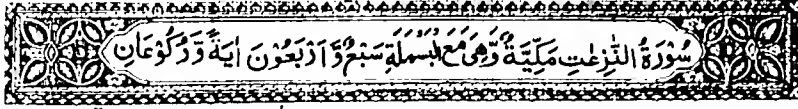 سُوْرَةُ النّٰزِعٰتِ مَكِّيَّةٌ وَّهِيَ مَعَ الْبَسْمَلَةِ سَبْعٌ وَّ اَرْبَعُوْنَ اٰيَةً وَّ رُكُوْعَانِ